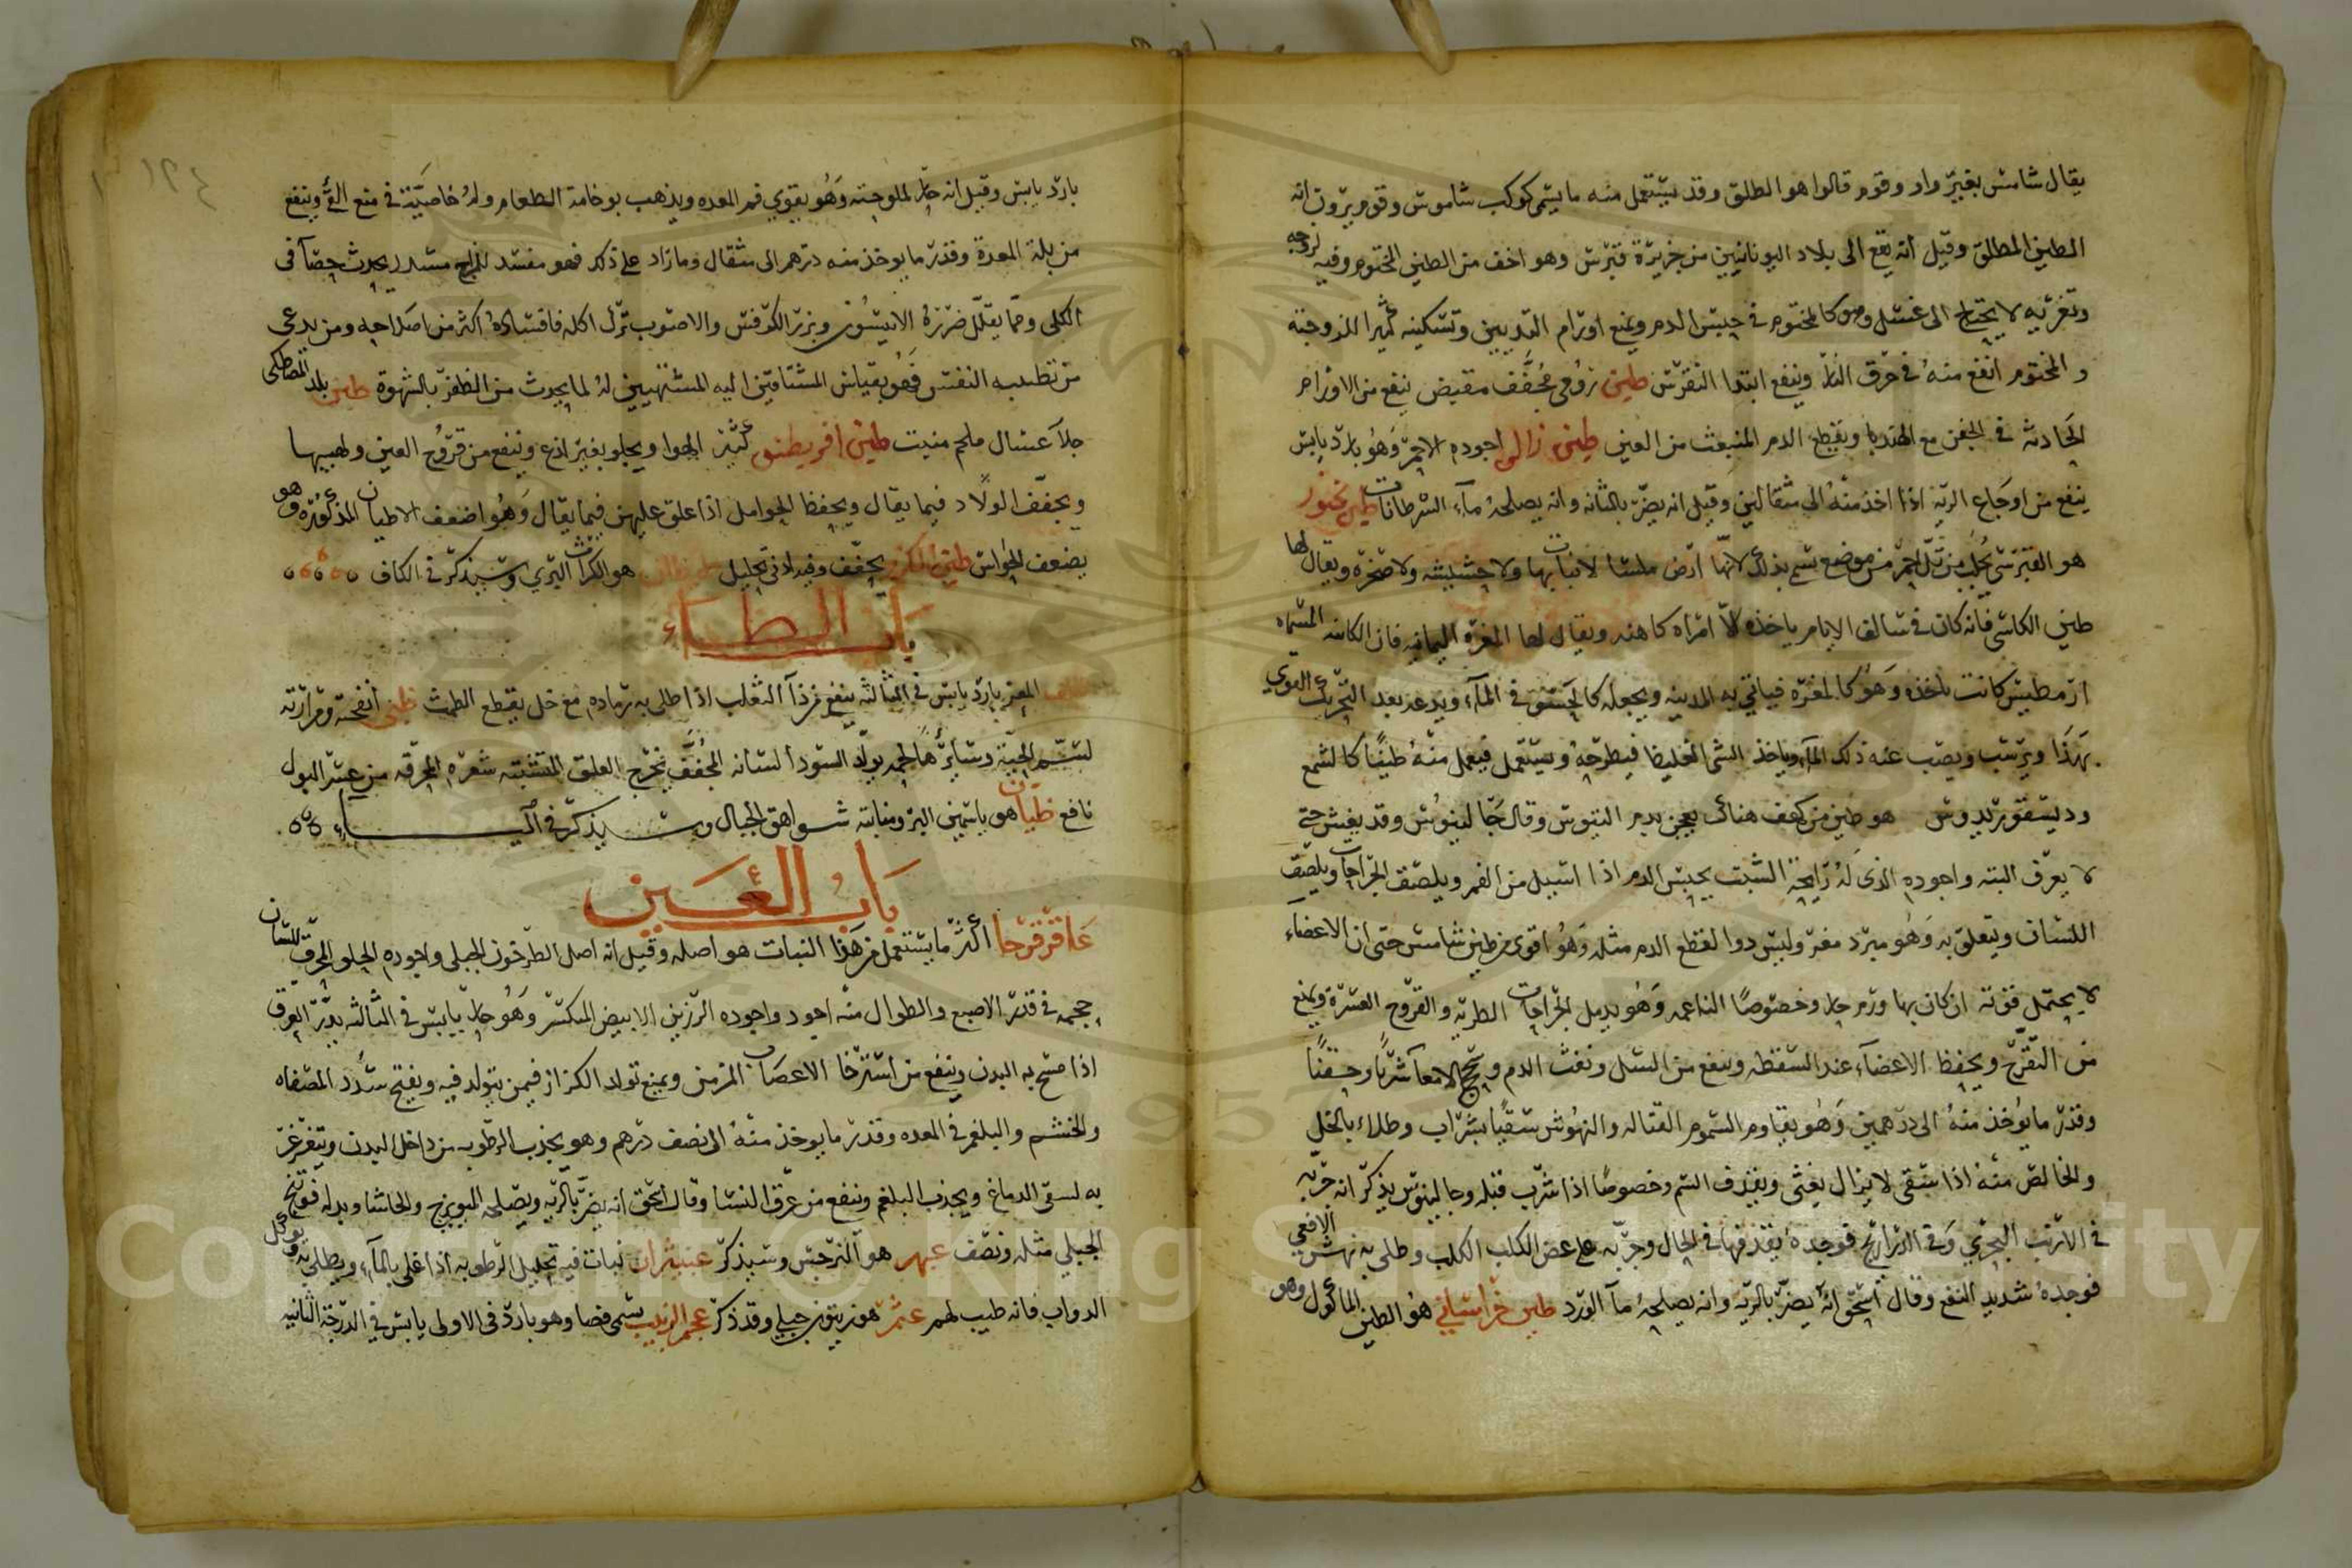 يقال شامس بغير واو وقوم قالوا هو الطلق وقد يستعمل منه ما يسمى كوكب شاموس وقوم يرون انه
الطين المطلق وقيل انه يقع الى بلاد اليونانيين من جزيرة قبرس وهو اخف من الطين المختوم وفيه لزوجه
وتغريه لا يحتاج الى غسل وهو كالمختوم في حبس الدم ويمنع اورام الثديين وتسكينه للزوجته
والمختوم انفع منه في حرق النار وينفع ابتدا النقرس طين رومي مجفف مقبض ينفع من الاورام
الحادثه في الجفن مع الهندبا ويقطع الدم المنبعث من العين طين اجوده الاحمر وهو بارد يابس
ينفع من اوجاع الرية اذا اخذ منه الى مثقالين وقيل انه يضر بالمثانه وانه يصلحه مآء السرطانات طين
هو القبرسي يجلب من تل احمر من موضع يسمى بذلك لانها ارض ملسا لا نبات بها ولا حشيشه ولا صخره ويقال لها
طين الكاهنى فانه كان في سالف الايام ياخذه امراه كاهنه ويقال لها المغره اليمانيه فان الكاهنه المسماه
ارمطيس كانت تاخذه وهو كالمغره فياتي به المدينه ويجعله في المآء ويدعه بعد التحريك القوي
يهدا ويرسب ويصب عنه ذلك المآء وياخذ الشى الغليظ فيطرحه ويستعمل فيعمل منه طينًا كالشمع
وديسقوريدوس هو طين من كهف هناك يعجن بدم التيوس وقال جالينوس وقد يغش حتى
لا يعرف البته واجوده الذى له رايحة الشبت يحبس الدم اذا اسيل من الفم ويلصق الجراحات ويلصق
اللسان ويتعلق به وهو مبرد مغر وليس دوا لقطع الدم مثله وهو اقوى من طين شامس حتى ان الاعضاء
لا يحتمل قوته ان كان بها ورم حار وخصوصًا الناعمه وهو يدمل الجراحات الطريه والقروح العسرة ويمنع
من التقرح ويحفظ الاعضآء عند السقطه وينفع من السل ونفث الدم وسحج الامعآء شربًا وحقنًا
وقدر ما يوخذ منه الى درهمين وهو يقاوم السموم القتاله والنهوش سقيًا بشراب وطلاء بالخل
والخالص منه اذا سقى لا يزال يغثى ويقذف السم وخصوصًا اذا شرب قبله وجالينوس يذكر انه جربه
في الارنب البحري وفى الذراريح فوجده يقذفها في الحال وجربه على عض الكلب الكلب وطلى به نهش الافعى
فوجده شديد النفع وقال اسحق انه يضر بالرية وانه يصلحه مآ الورد طين خراساني هو الطين الماكول وهو
بارد يابس وقيل انه حار لملوحته وهو يقوي فم المعده ويذهب بوخامة الطعام وله خاصية في منع القي وينفع
من بلة المعدة وقدر ما يوخذ منه درهم الى مثقال وما زاد على ذلك فهو مفسد للمزاج مسدد يحدث حصآ فى
الكلى ومما يقلل ضرره الانيسون وبزر الكرفس والاصوب ترك اكله فافساده اكثر من اصلاحه ومن يدعى
من تطييبه النفس فهو بقياس المشتاقين اليه المشتهيين له لما يحدث من الظفر بالشهوة طين بلد المصطكى
جلآ غسال ملحم منبت طين اقريطش كثير الهوا ويجلو بغير لذع وينفع من قروح العين ولهيبها
ويجفف الولاد فيما يقال ويحفظ الحوامل اذا علق عليهن فيما يقال وهو اضعف الاطيان المذكوره وهو
يضعف الحواس طين الكرم يجفف وفيه ادنى تحليل هو الكراث البري وسيذكر في الكاف
باب الظاء
ظلف المعز بارد يابس في الثالثه ينفع من دآ الثعلب اذا طلى به رماده مع خل يقطع الطمث ظبى انفحته ومرارته
لسم الحية وسائرها لحمه يولد السودا لسانه المجفف يخرج العلق المتشبثه شعره المحرقه من عسر البول
نافع ظيان هو ياسمين البر ومنابته شواهق الجبال وسيذكر في اليـاء
باب العين
عاقرقرحا اكثر ما يستعمل من هذا النبات هو اصله وقيل انه اصل الطرخون الجبلى واجوده الحلو المحرق للسان
حجمه في قدر الاصبع والطوال منه اجود واجوده الرزين الابيض المكسر وهو حار يابس في الثالثه يدر العرق
اذا مسح به البدن وينفع من استرخا الاعصاب المزمن ويمنع تولد الكزاز فيمن يتولد فيه ويفتح سدد المصفاه
والخشم والبلغم في المعده وقدر ما يوخذ منه الى نصف درهم وهو يجذب الرطوبه من داخل البدن ويتغرغر
به لسقى الدماغ ويجذب البلغم وينفع من عرق النسا وقال اسحق انه يضر بالريه ويصلحه المويزج والحاشا وبدله فوتنج
الجبلي مثله ونصف عبهر هو النرجس وسيذكر عبيثران نبات فيه تحليل الرطوبه اذا غلى بالمآء ويطلى به ويوكل
الدواب فانه طيب لهم عثم هو زيتون جبلي وقد ذكر عجم الزبيب يسمى فصا وهو بارد فى الاولى يابس في الدرجة الثانيه
Copyright © King Saud University
1957